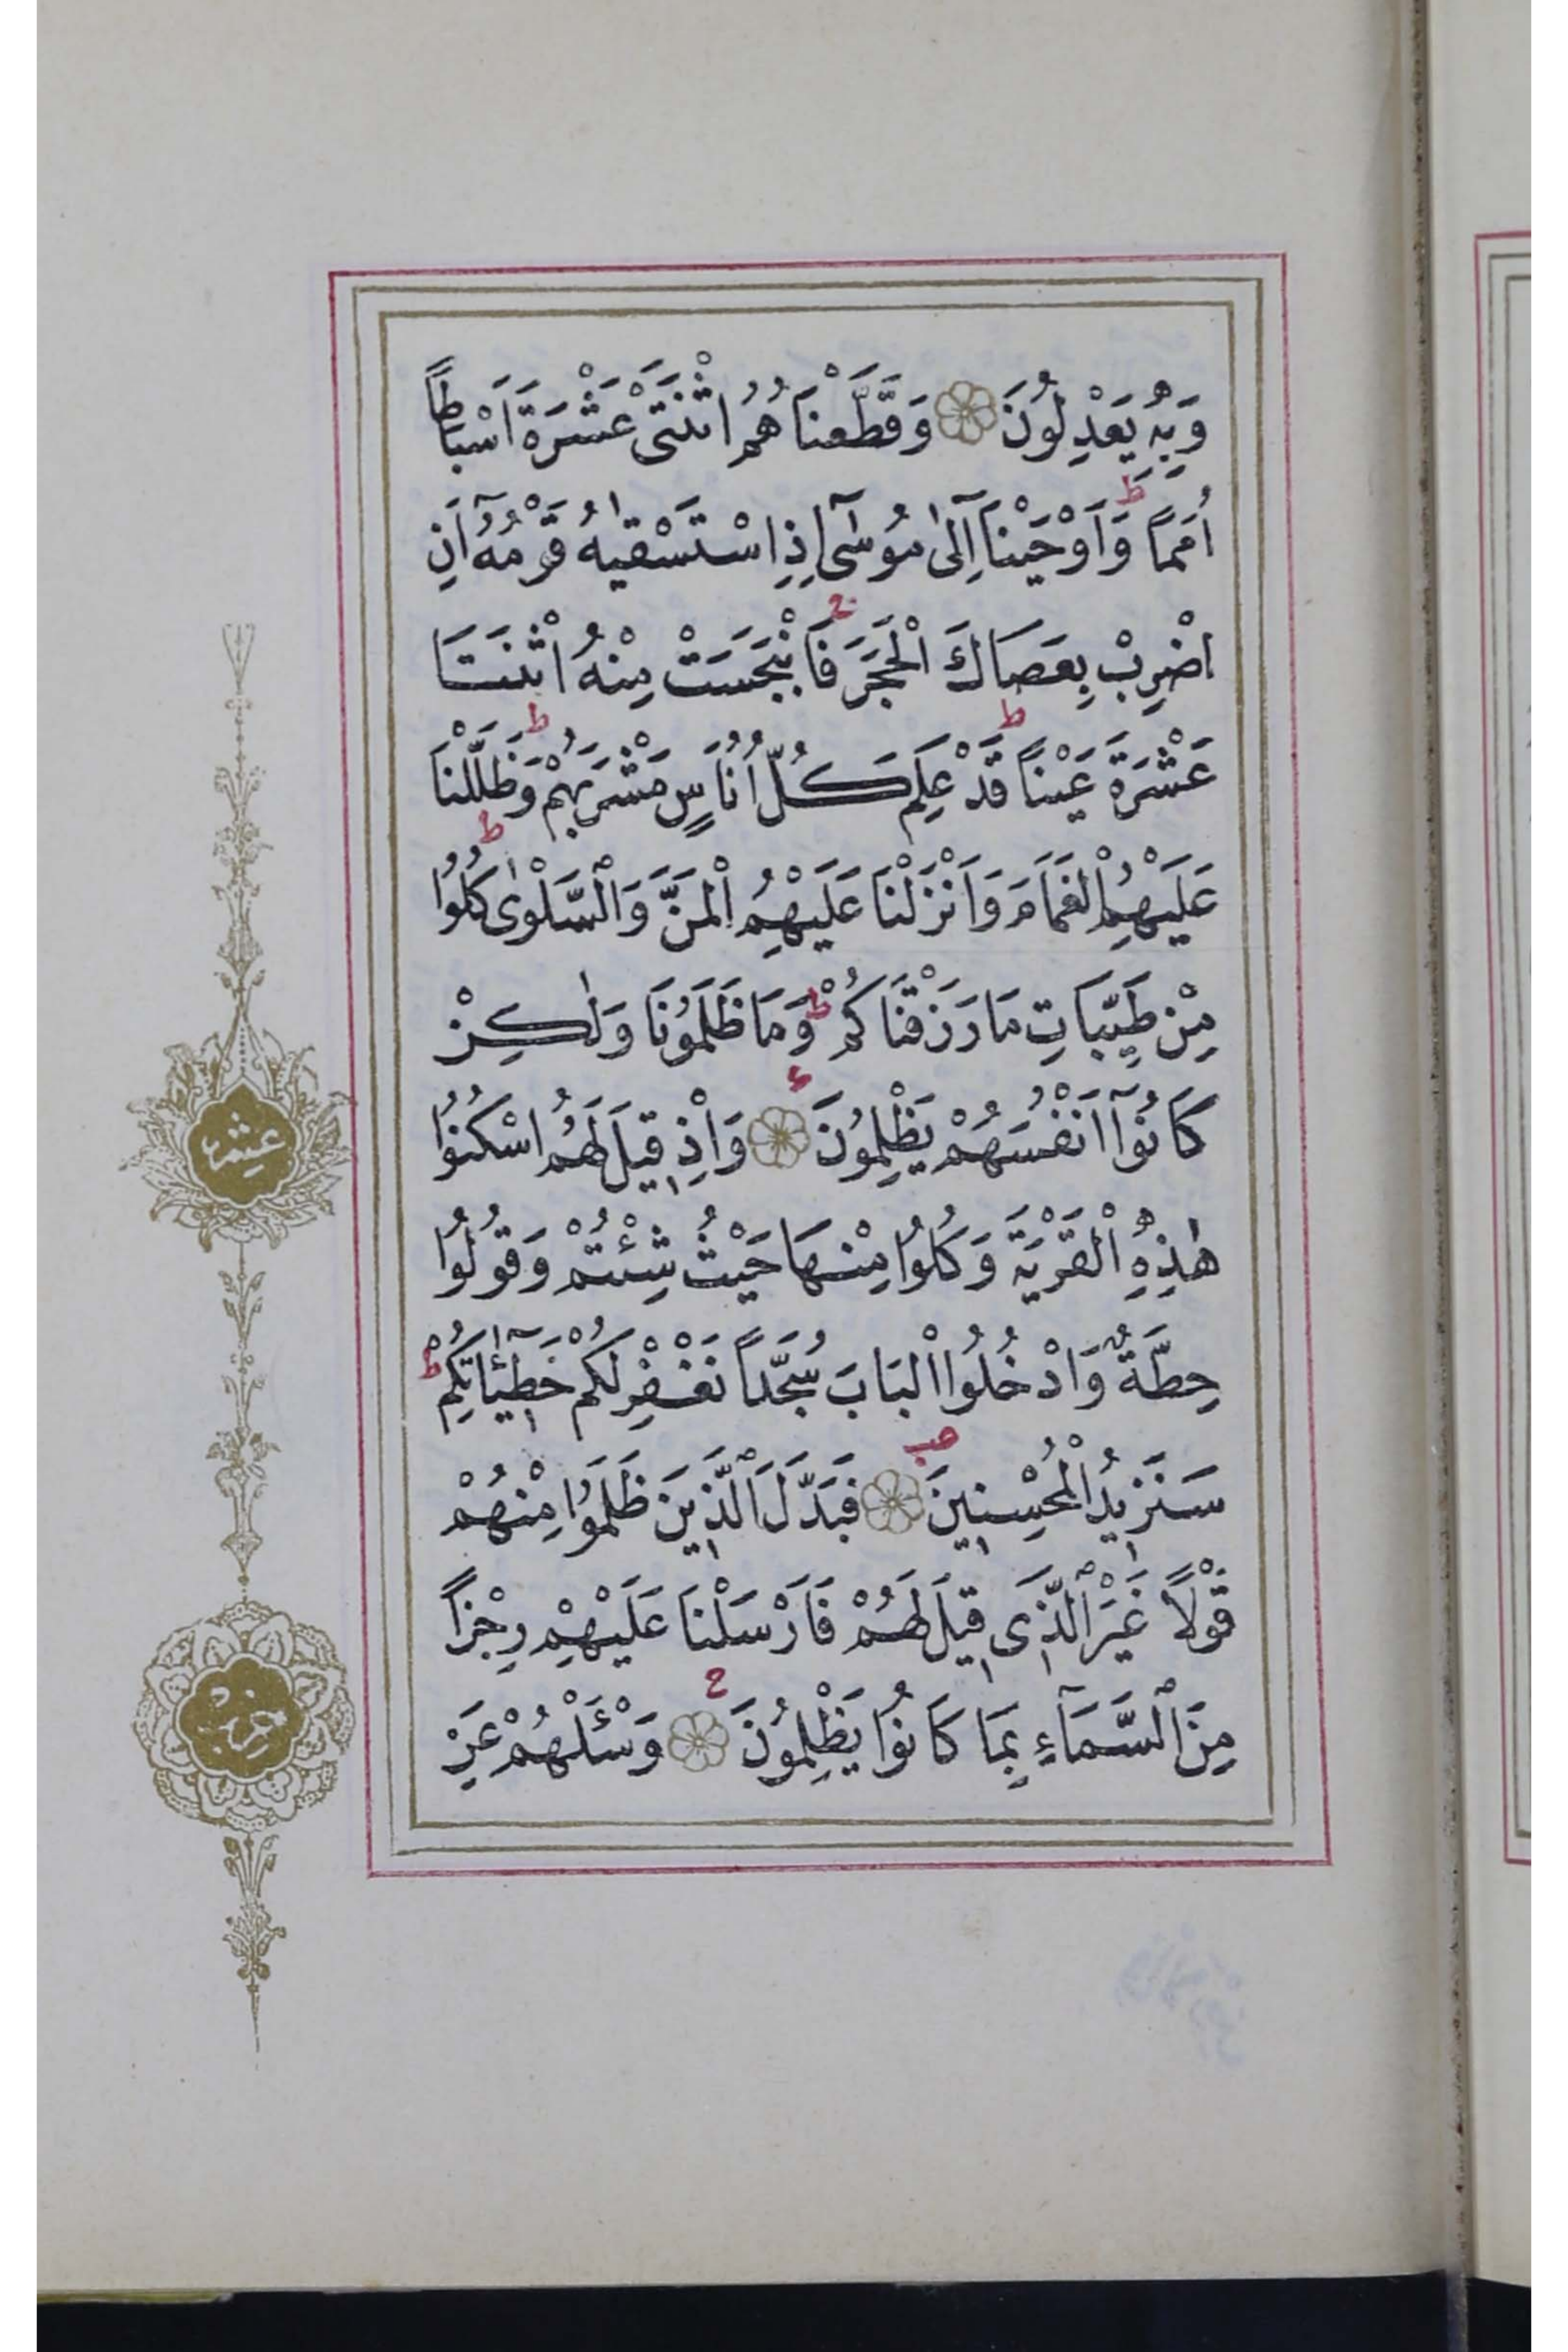 وَبِهٖ يَعْدِلُونَ وَقَطَّعْنَاهُمُ اثْنَتَىْ عَشْرَةَ اَسْبَاطًا
اُمَمًا ط وَاَوْحَيْنَآ اِلٰى مُوسٰٓى اِذِ اسْتَسْقٰيهُ قَوْمُهُٓ اَنِ
اضْرِبْ بِعَصَاكَ الْحَجَرَ ج فَانْبَجَسَتْ مِنْهُ اثْنَتَا
عَشْرَةَ عَيْنًا ط قَدْ عَلِمَ كُلُّ اُنَاسٍ مَشْرَبَهُمْ ط وَظَلَّلْنَا
عَلَيْهِمُ الْغَمَامَ وَاَنْزَلْنَا عَلَيْهِمُ الْمَنَّ وَالسَّلْوٰى ط كُلُوا
مِنْ طَيِّبَاتِ مَا رَزَقْنَاكُمْ ط وَمَا ظَلَمُونَا وَلٰكِنْ
كَانُوٓا اَنْفُسَهُمْ يَظْلِمُونَ وَاِذْ قِيلَ لَهُمُ اسْكُنُوا
هٰذِهِ الْقَرْيَةَ وَكُلُوا مِنْهَا حَيْثُ شِئْتُمْ وَقُولُوا
حِطَّةٌ وَادْخُلُوا الْبَابَ سُجَّدًا نَغْفِرْ لَكُمْ خَطِٓيـَٔاتِكُمْ ط
سَنَزِيدُ الْمُحْسِنِينَ فَبَدَّلَ الَّذِينَ ظَلَمُوا مِنْهُمْ
قَوْلًا غَيْرَ الَّذِى قِيلَ لَهُمْ فَاَرْسَلْنَا عَلَيْهِمْ رِجْزًا
مِنَ السَّمَآءِ بِمَا كَانُوا يَظْلِمُونَ وَسْـَٔلْهُمْ عَنِ
عشر
حزب